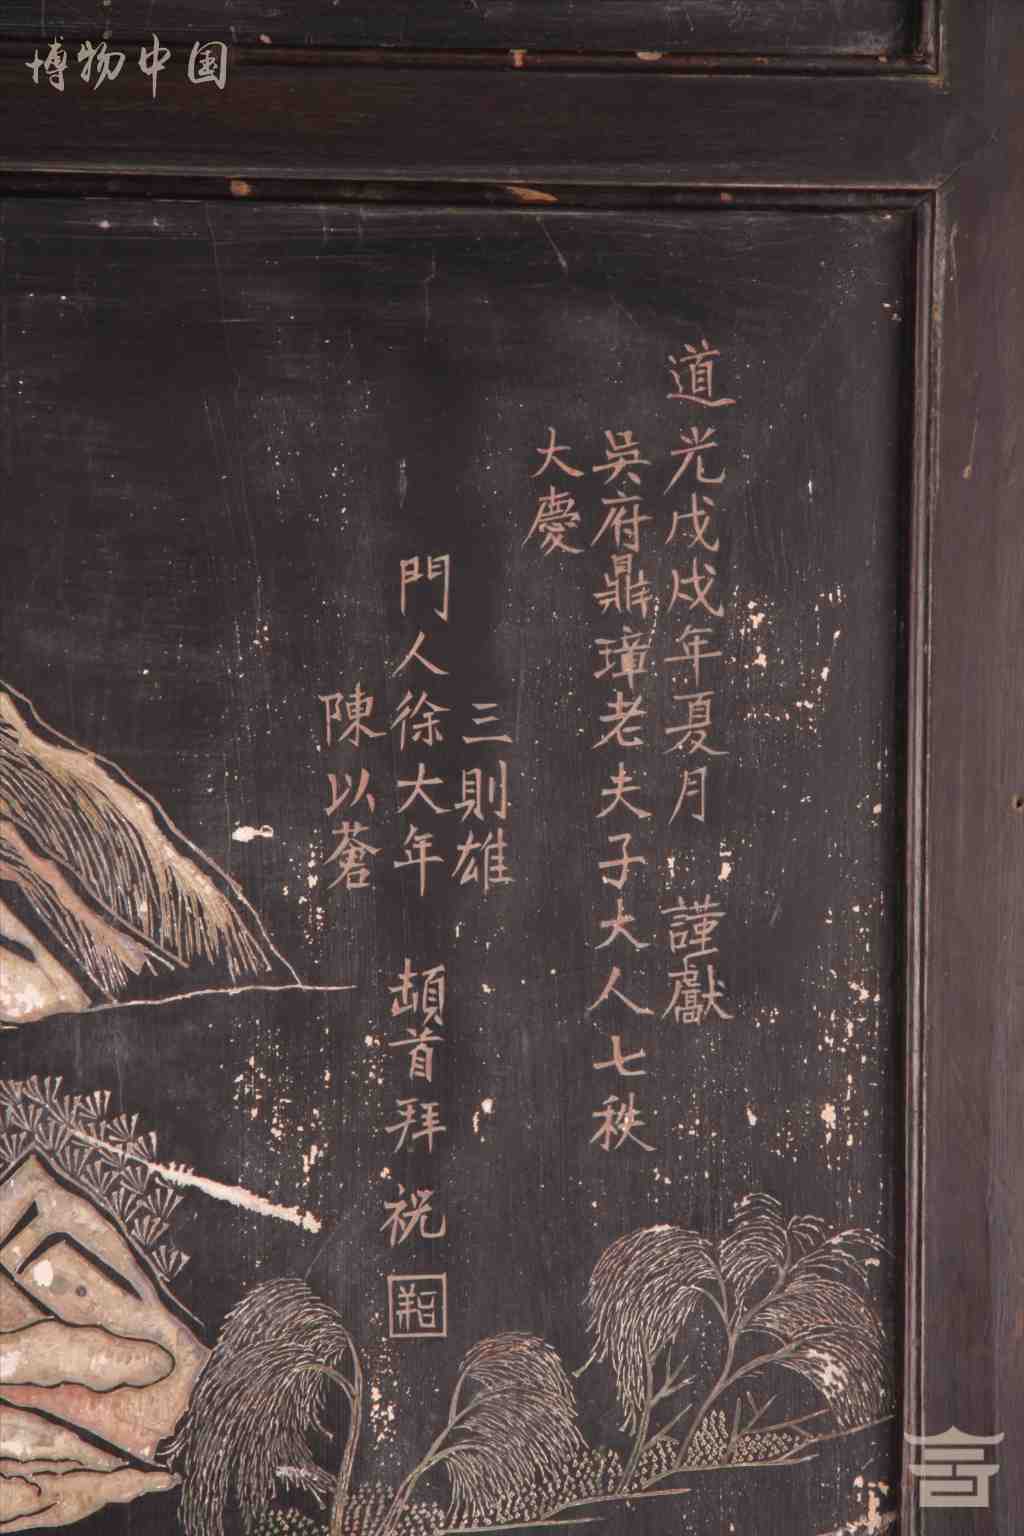 博物中国
道光戊戌年夏月 謹獻
吳府鼎璋老夫子大人七秩
大慶
三則雄
門人徐大年 頓首拜祝
陳以蒼